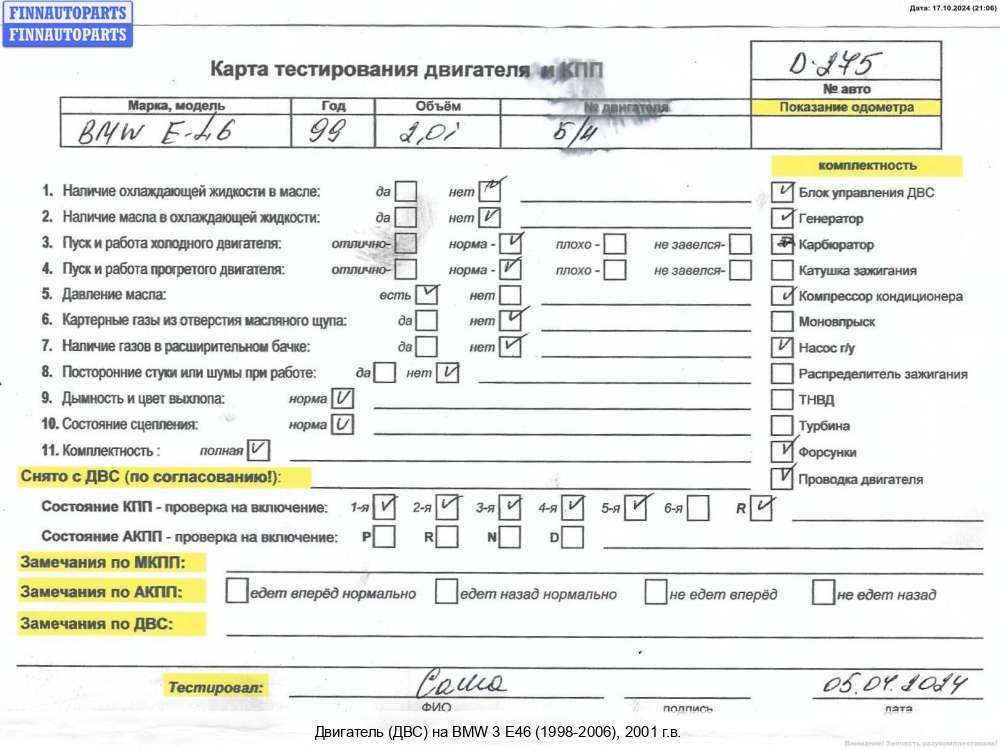 FINNAUTOPARTS
FINNAUTOPARTS
Дата: 17.10.2024 (21:06)
Карта тестирования двигателя и КПП
D-275
№ авто
Марка, модель Год Объём № двигателя Показание одометра
BMW E-46 99 2,0i Б/Н
комплектность
1. Наличие охлаждающей жидкости в масле: да нет Блок управления ДВС
2. Наличие масла в охлаждающей жидкости: да нет Генератор
3. Пуск и работа холодного двигателя: отлично- норма - плохо - не завелся- Карбюратор
4. Пуск и работа прогретого двигателя: отлично- норма - плохо - не завелся- Катушка зажигания
5. Давление масла: есть нет Компрессор кондиционера
6. Картерные газы из отверстия масляного щупа: да нет Моновпрыск
7. Наличие газов в расширительном бачке: да нет Насос г/у
8. Посторонние стуки или шумы при работе: да нет Распределитель зажигания
9. Дымность и цвет выхлопа: норма ТНВД
10. Состояние сцепления: норма Турбина
11. Комплектность : полная Форсунки
Снято с ДВС (по согласованию!): Проводка двигателя
Состояние КПП - проверка на включение: 1-я 2-я 3-я 4-я 5-я 6-я R
Состояние АКПП - проверка на включение: P R N D
Замечания по МКПП:
Замечания по АКПП: едет вперёд нормально едет назад нормально не едет вперёд не едет назад
Замечания по ДВС:
Тестировал: Саша 05.04.2024
ФИО подпись дата
Двигатель (ДВС) на BMW 3 E46 (1998-2006), 2001 г.в.
Внимание! Запчасть разукомплектована!